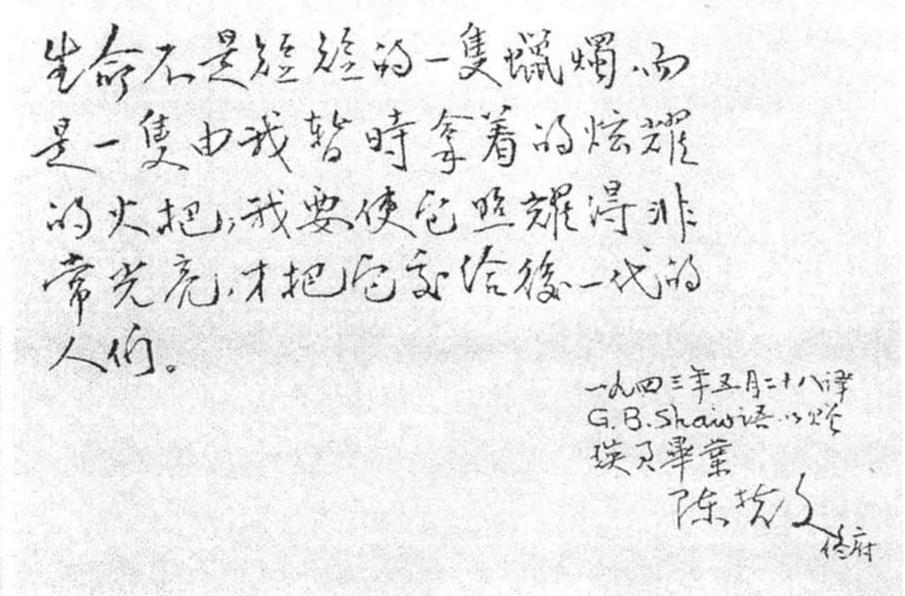 生命不是短短的一隻蠟燭,而
是一隻由我暫時拿着的炫耀
的火把,我要使它照耀得非
常光亮,才把它交給後一代的
人们。
一九四三年五月二十八譯
G.B.Shaw语以贈
畢業
陈